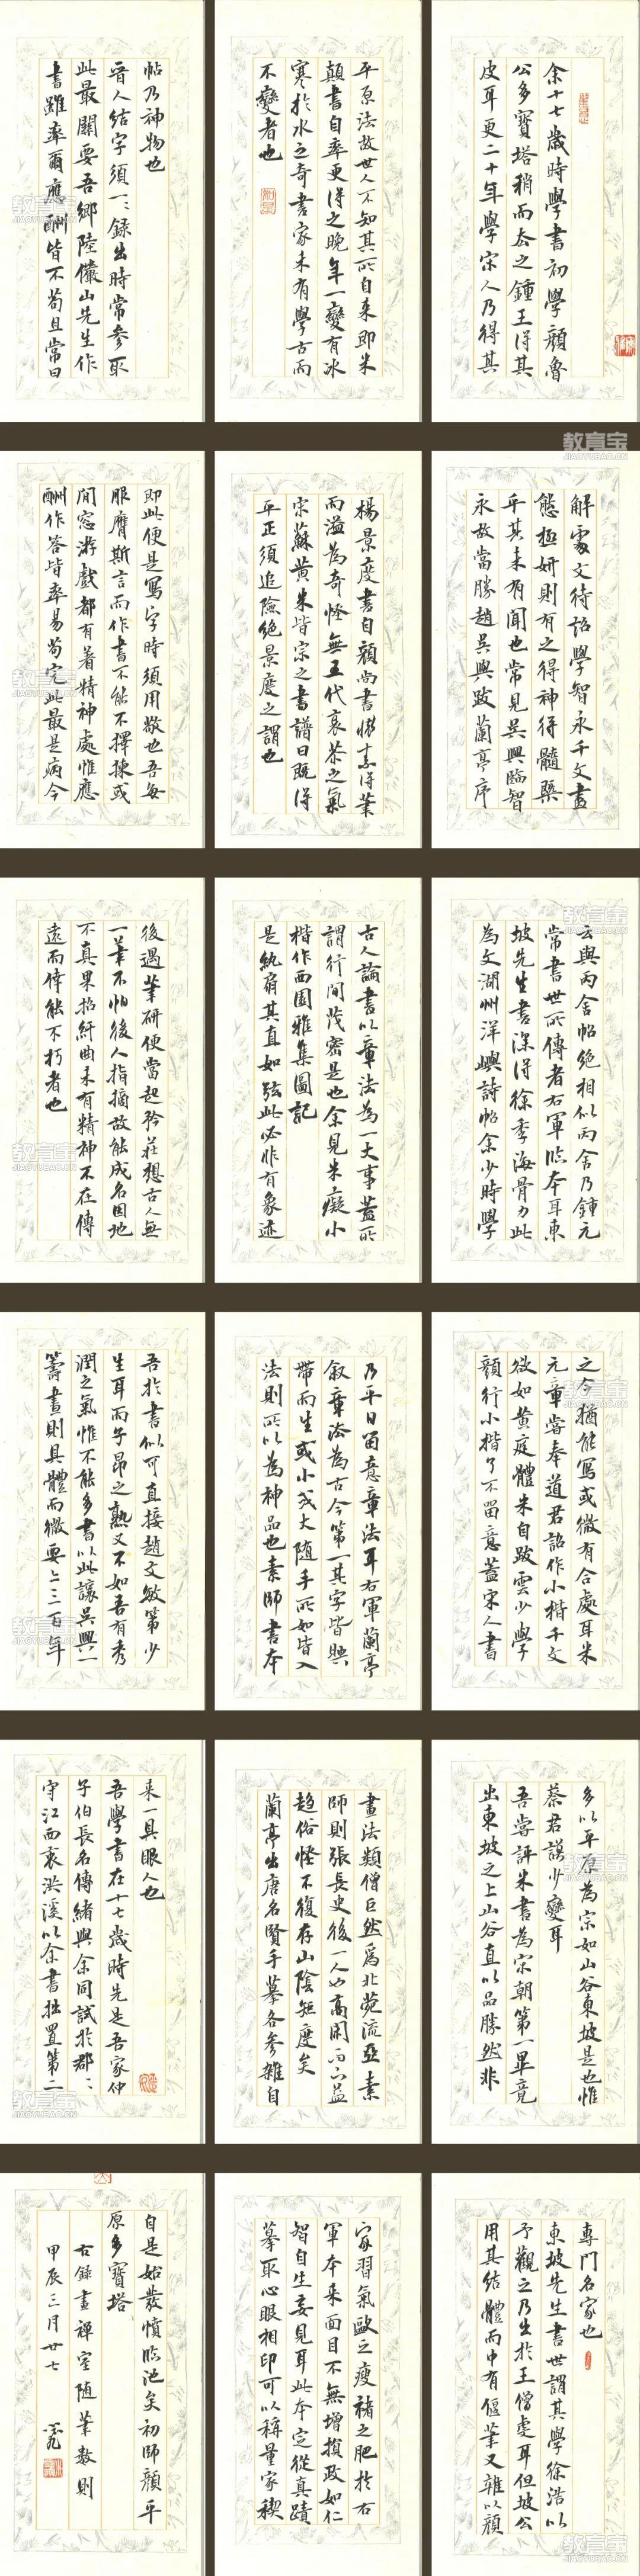 余十七歲時學書初學顏魯
公多寶塔稍而去之鍾王得其
皮耳更二十年學宋人乃得其
解處文待詔學智永千文盡
態極妍則有之得神得髓槩
乎其未有聞也常見吳興臨智
永故當勝趙吳興跋蘭亭序
云與丙舍帖絕相似丙舍乃鍾元
常書世所傳者右軍臨本耳東
坡先生書深得徐季海骨力此
為文湖州洋嶼詩帖余少時學
之今猶能寫或微有合處耳米
元章嘗奉道君詔作小楷千文
欲如黃庭體米自跋雲少學
顏行小楷了不留意蓋宋人書
多以平原為宗如山谷東坡是也惟
蔡君謨少變耳
吾嘗評米書為宋朝第一畢竟
出東坡之上山谷直以品勝然非
專門名家也
東坡先生書世謂其學徐浩以
予觀之乃出於王僧虔耳但坡公
用其結體而中有偃筆又雜以顏
平原法故世人不知其所自來即米
顛書自率更得之晚年一變有冰
寒於水之奇書家未有學古而
不變者也
楊景度書自顏尚書懷素得筆
而溢為奇怪無五代衰苶之氣
宋蘇黃米皆宗之書譜曰既得
平正須追險絕景度之謂也
古人論書以章法為一大事蓋所
謂行間茂密是也余見米癡小
楷作西園雅集圖記
是紈扇其直如弦此必非有象迹
乃平日留意章法耳右軍蘭亭
敘章法為古今第一其字皆映
帶而生或小或大隨手所如皆入
法則所以為神品也素師書本
畫法類僧巨然為北苑流亞素
師則張長史後一人也高閑而下益
趨俗怪不復存山陰矩度矣
蘭亭出唐名賢手摹各參雜自
家習氣歐之瘦褚之肥於右
軍本來面目不無增損政如仁
智自生妄見耳此本定從真蹟
摹取心眼相印可以稱量家稧
帖乃神物也
晉人結字須一二錄出時常參取
此最關要吾鄉陸儼山先生作
書雖率爾應酬皆不苟且常曰
即此便是寫字時須用敬也吾每
服膺斯言而作書不能不擇揀或
閒窓游戲都有著精神處惟應
酬作答皆率易苟完此最是病今
後遇筆研便當起矜莊想古人無
一筆不怕後人指摘故能成名因地
不真果招紆曲未有精神不在傳
遠而倖能不朽者也
吾於書似可直接趙文敏第少
生耳而子昂之熟又不如吾有秀
潤之氣惟不能多書以此讓吳興一
籌畫則具體而微要亦三百年
來一具眼人也
吾學書在十七歲時先是吾家仲
子伯長名傳緒與余同試於郡二
守江西衷洪溪以余書拙置第二
自是始發憤臨池矣初師顏平
原多寶塔
右錄畫禪室隨筆數則
甲辰三月廿七
教育宝
JIAOYUBAO.CN